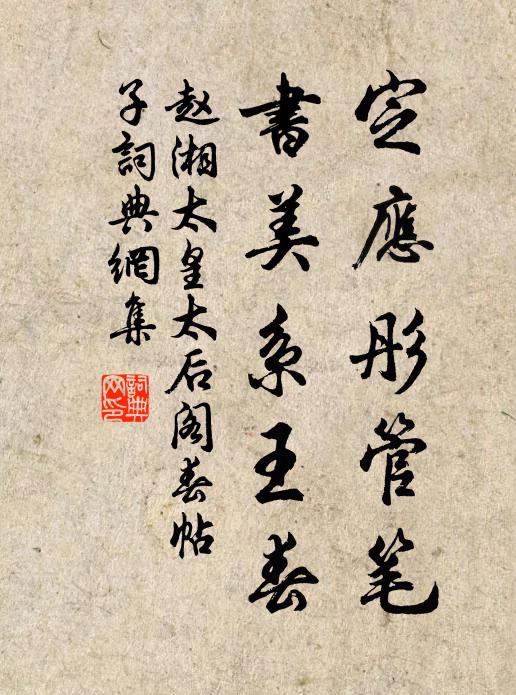 定應彤管笔
書美系王春
赵湘太皇太后阁春帖
子詞典網集
詞典网印